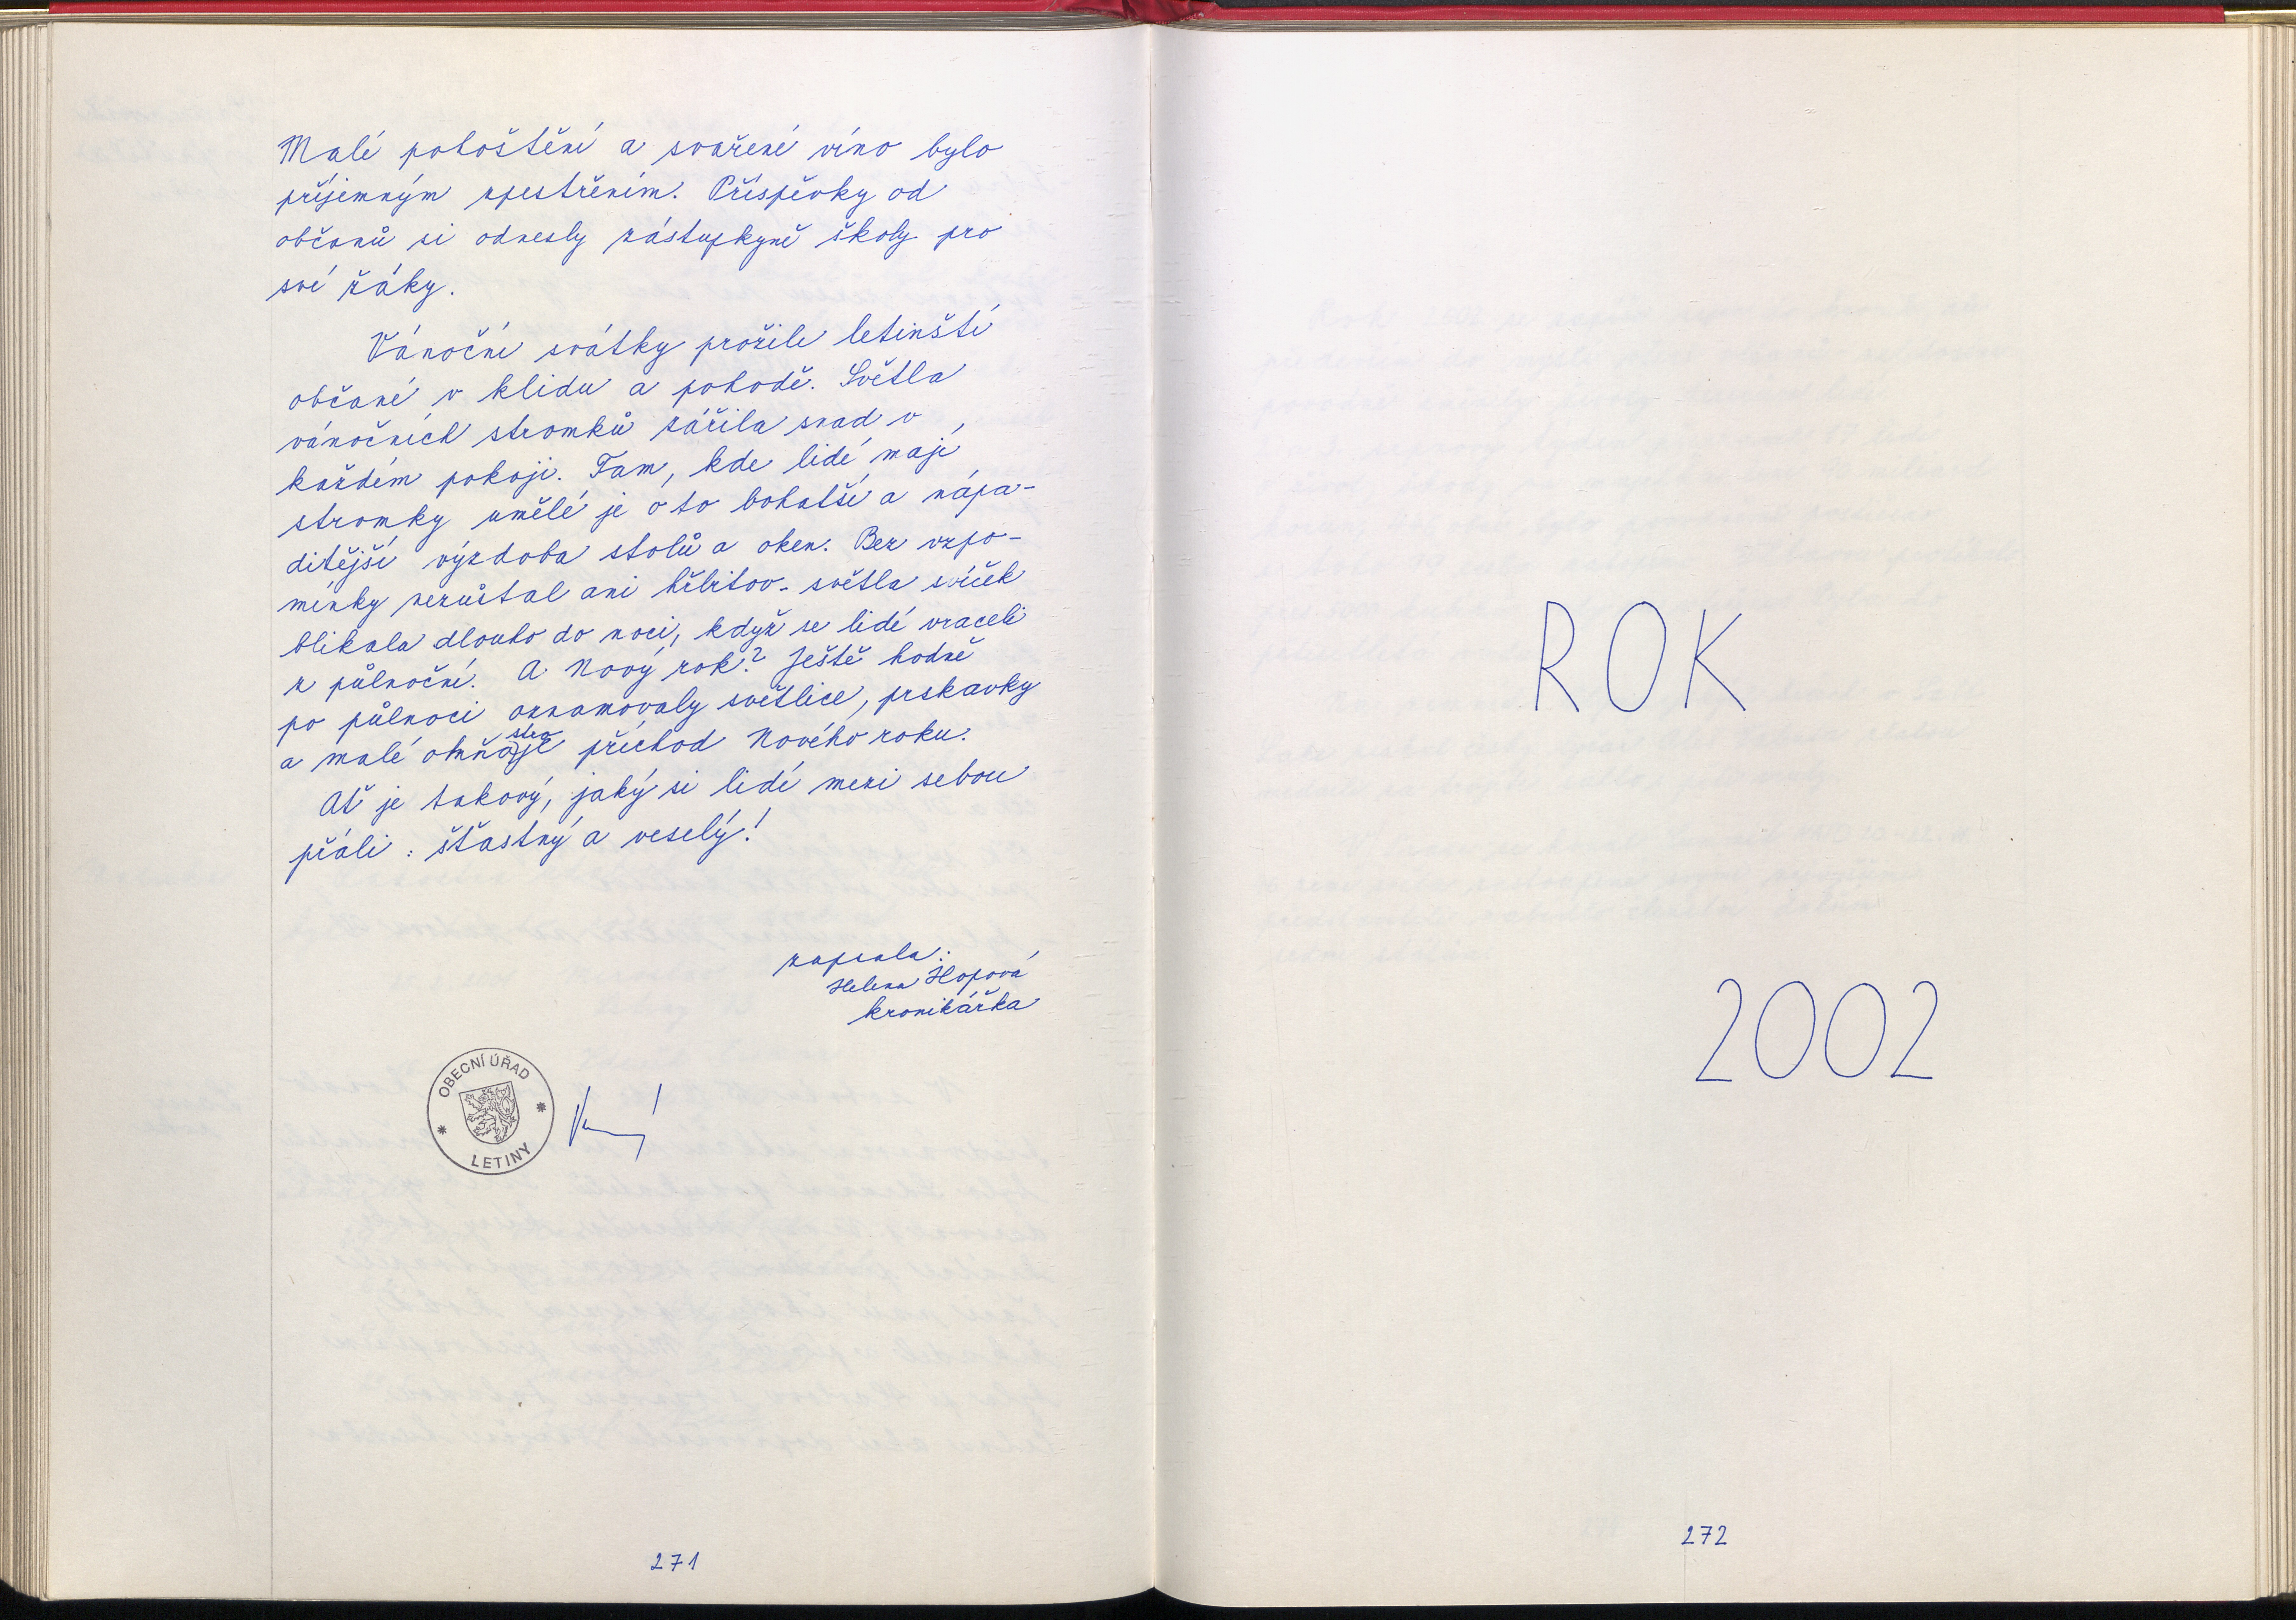 Malé pohoštění a svařené víno bylo
příjemným zpestřením. Příspěvky od
občanů si odnesly zástupkyně školy pro
své žáky.
Vánoční svátky prožili letinští
občané v klidu a pohodě. Světla
vánočních stromků zářila snad v
každém pokoji. Tam, kde lidé mají
stromky umělé je o to bohatší a nápa-
ditější výzdoba stolů a oken. Bez vzpo-
mínky nezůstal ani hřbitov - světla svíček
blikala dlouho do noci, když se lidé vraceli
z půlnoční. A Nový rok? Ještě hodně
po půlnoci oznamovaly světlice, prskavky
a malé ohňostroje příchod Nového roku.
Ať je takový, jaký si lidé mezi sebou
přáli: šťastný a veselý!
zapsala:
Helena Hopová
kronikářka
OBECNÍ ÚŘAD
LETINY
271
ROK
2002
272